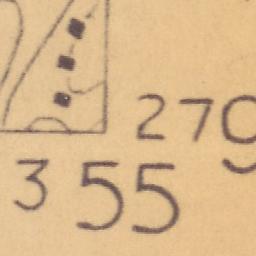 270
3 55